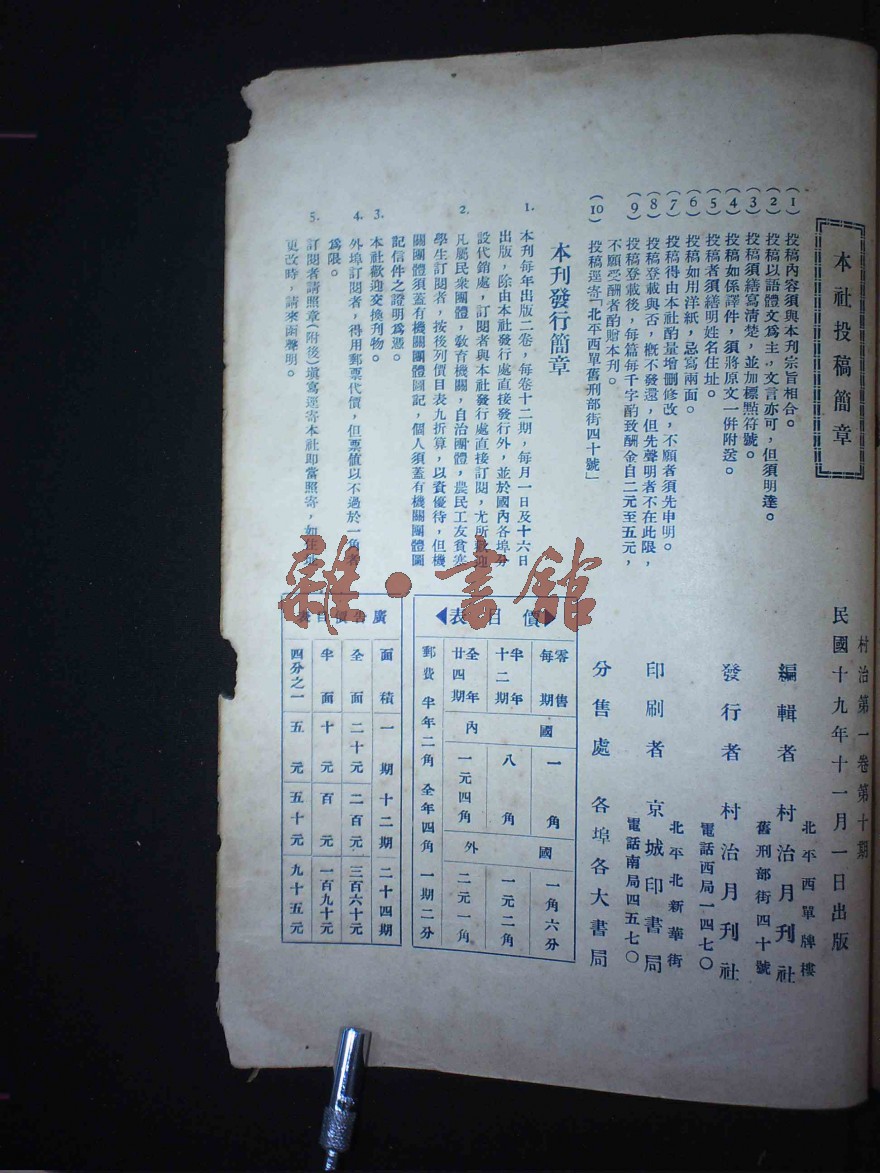 本社投稿簡章
(1) 投稿內容須與本刊宗旨相合。
(2) 投稿以語體文為主，文言亦可，但須明達。
(3) 投稿須繕寫清楚，並加標點符號。
(4) 投稿如係譯件，須將原文一併附送。
(5) 投稿者須繕明姓名住址。
(6) 投稿如用洋紙，忌寫兩面。
(7) 投稿得由本社酌量增删修改，不願者須先申明。
(8) 投稿登載與否，槪不發還，但先聲明者不在此限，
(9) 投稿登載後，每篇每千字酌致酬金自二元至五元，
不願受酬者酌贈本刊。
(10) 投稿逕寄「北平西單舊刑部街四十號」
本刊發行簡章
1. 本刊每年出版二卷，每卷十二期，每月一日及十六日
出版，除由本社發行處直接發行外，並於國內各埠分
設代銷處，訂閱者與本社發行處直接訂閱，尤所歡迎
2. 凡屬民衆團體，敎育機關，自治團體，農民工友貧寒
學生訂閱者，按後列價目表九折算，以資優待，但機
關團體須蓋有機關團體圖記，個人須蓋有機關團體圖
記信件之證明為憑。
3. 本社歡迎交換刊物。
4. 外埠訂閱者，得用郵票代價，但票値以不過於一角者
為限。
5. 訂閱者請照章(附後)塡寫逕寄本社卽當照寄，如住址
更改時，請來函聲明。
村治第一卷第十期
民國十九年十一月一日出版
編輯者 村治月刊社
北平西單牌樓
舊刑部街四十號
發行者 村治月刊社
電話西局一四七〇
印刷者 京城印書局
北平北新華街
電話南局四五七〇
分售處 各埠各大書局
價目表
零售每期 國內 一角 國外 一角六分
半年十二期 八角 一元二角
全年廿四期 一元四角 二元一角
郵費 半年二角 全年四角 一期二分
廣告價目表
面積 一期 十二期 二十四期
全面 二十元 二百元 三百六十元
半面 十元 百元 一百九十元
四分之一 五元 五十元 九十五元
雜·書館